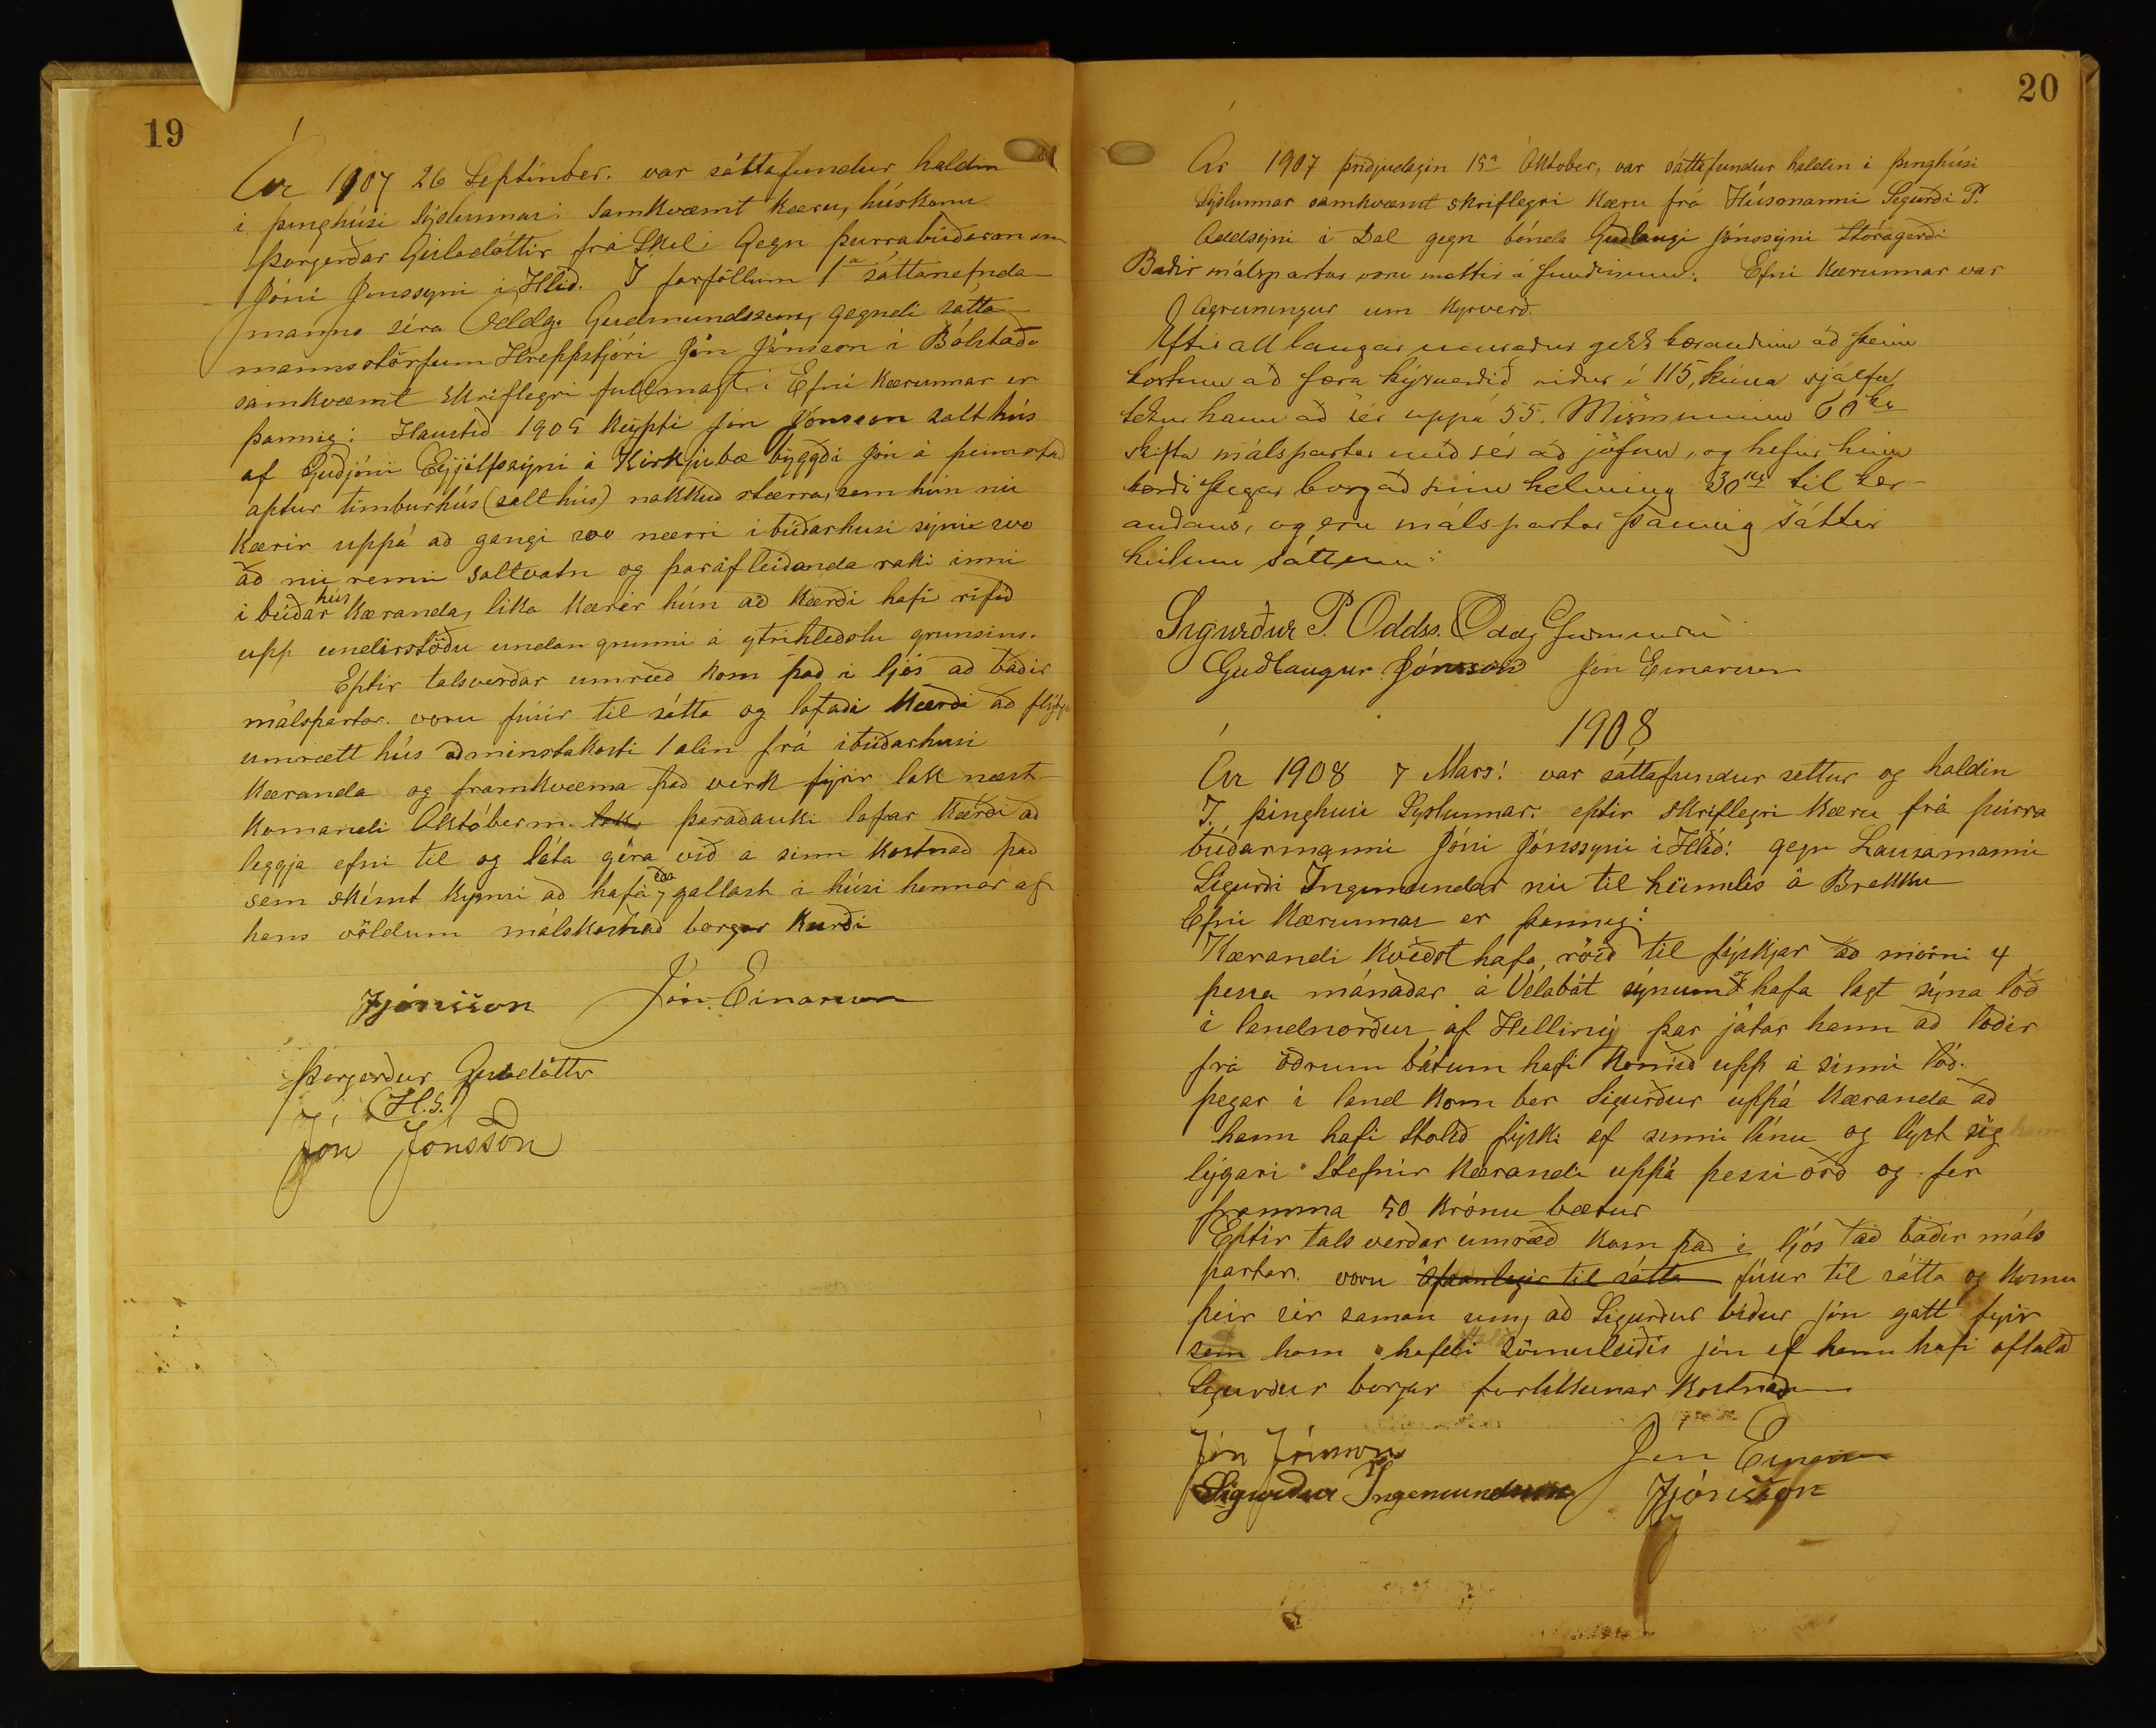 19
Ár 1907 26 September. var sáttafundur haldin
i þinghúsi Sýslunnar: Samkvæmt kæru, húskonu
Þorgerðar Gísladóttir frá Skel: Gegn þurrabúðarmanni
Jóni Jonssyni i Hlíð. I forföllum 1a sáttanefnda
manns séra Oddg. Gudmundssen, gegndi sátta
mannsstörfum Hreppstjóri Jón Jónsson i Bólstað.
samkvæmt skriflegri fullmagt: Efni kærunnar er
þannig: Haustið 1905 keypti Jón Jónsson salthús
af Guðjóni Eyjólfssyni á Kirkjubæ bygði Jón á þeimstað
aptur timburhús (salthús) nokkuð stærra, sem hún nú
kærir uppá að gangi svo nærri ibúðarhusi sýnu svo
að nú renni saltvatn og þaraf leiðanda raki inni
i búðar hús kæranda, lika kærir hún að kærði hafi rifið
upp undirstöðu undan grunni á ytrihliðslu grunsins.
Eptir talsverðar umræð kom það i ljós að báðir
málspartar. voru fúsir til sátta og lofaði kærði að flytja
umrætt hús að minstakosti 1 alin frá ibúðarhusi
kæranda og framkvæma það verk fýrir lok næst
komandi Október m. lok þaraðauki lofar kærði að
leggja efni til og láta gjöra við a sinn kostnað það
sem skémt kynni að hafa, eða gallast i húsi hennar af
hans völdum málskostnað borgar kærði
JJónsson Jón Einarsson
Þorgerður Gísladóttir
(H.S.)
Jón Jónsson
20
Ár 1907 þriðjudagin 15a Október, var sáttafundur haldin i þinghúsi
Sýslunnar samkvæmt skriflegri kæru frá Húsmanni Sigurði P.
Oddsýni i Dal gegn bónda Guðlaugi Jónssýni Stóragerði
Báðir málspartar voru mættir á fundinum. Efni kærunnar var
Agreiningur um kýrverð.
Eftir all langar umræður gekk kærandinn að þeim
kostum að færa kýrverðið niður í 115, kúna sjálfa
tekur hann að sér uppá 55. Mismuninn 60 kr
skifta málspartar með sér að jöfnu, og hefur hinn
kærði þegar borgað sinn helming 30 kr til kær-
andans, og eru málspartar þannig sáttir
heilum sáttum:
Sigurður P. Oddss. Oddg Guðmunds
Guðlaugur Jónsson Jón Einarsson
1908
Ár 1908 7 Mars: var sáttafundur settur og haldin
I. þinghúsi Syslunnar: eptir skriflegri kæru frá þurra
búðarmanni Jóni Jónssyni i Hlíð: gegn Lausamanni
Sigurði Ingimundar nú til heimilis á Brekku
Efni kærunnar er þannig:
Kærandi kveðst hafa, róið til fýskjar að morni 4
þessa mánaðar á Vélabát sýnum & hafa lagt sýna lóð
i landnorður af Hellirey þar játar hann að lóðir
frá öðrum bátum hafi komið upp á sinni lóð.
þegar i land kom ber Sigurður uppá kæranda að
hann hafi stolið fýski af sinni línu og lýst sig
lýgari. Stefnir kærandi uppá þessi orð og fer
framma 50 krónu bætur
Eptir tals verðar umræð kom það i ljós að báðir máls
partar. voru ófáanlegir til sátta fúsir til sátta og komu
þeir sér saman um, að Sigurður biður Jón gott fyrir
sem hann hafði sömuleiðis Jón ef hann hafi oftalað
Sigurður borgar forlikkunar kostnað
Jón Jónsson Jón Einarsson
Sigurður Ingimundsson JJónsson